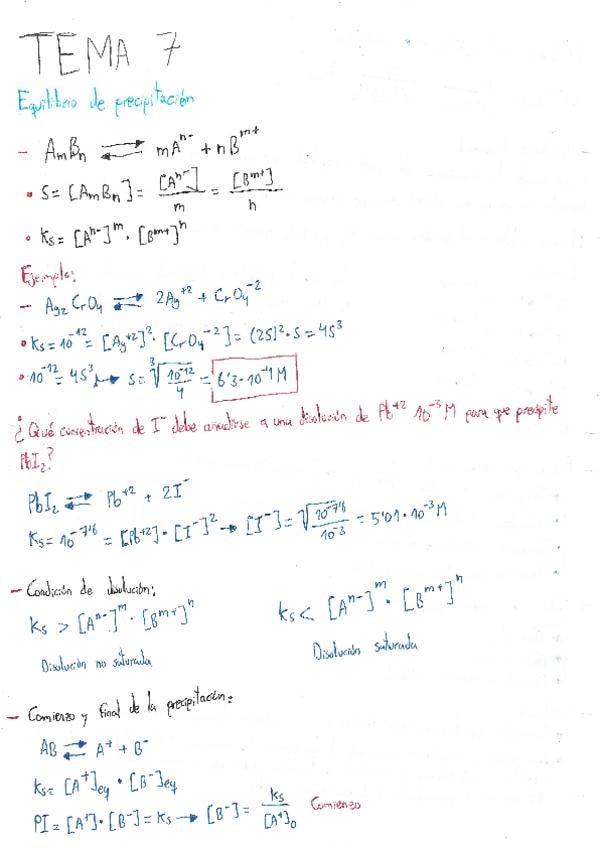 TEMA 7
Equilibrio de precipitación
- AmBn ⇄ mA^n- + nB^m+
• S = [AmBn] = [A^n-]/m = [B^m+]/n
• Ks = [A^n-]^m · [B^m+]^n
Ejemplo:
- Ag2CrO4 ⇄ 2Ag^+2 + CrO4^-2
• Ks = 10^-12 = [Ag^+2]^2 · [CrO4^-2] = (2S)^2 · S = 4S^3
• 10^-12 = 4S^3 → S = ∛(10^-12/4) = 6'3 · 10^-4 M
¿Qué concentración de I^- debe añadirse a una disolución de Pb^+2 10^-3 M para que precipite
PbI2?
PbI2 ⇄ Pb^+2 + 2I^-
Ks = 10^-7'6 = [Pb^+2] · [I^-]^2 → [I^-] = √(10^-7'6/10^-3) = 5'01 · 10^-3 M
- Condición de disolución:
Ks > [A^n-]^m · [B^m+]^n    Ks < [A^n-]^m · [B^m+]^n
Disolución no saturada    Disolución saturada
- Comienzo y final de la precipitación:
AB ⇄ A^+ + B^-
Ks = [A^+]eq · [B^-]eq
PI = [A^+] · [B^-] = Ks → [B^-] = Ks/[A^+]0 Comienzo